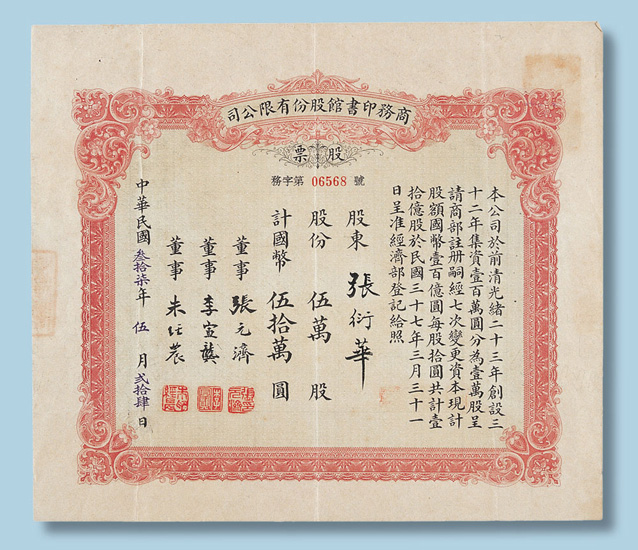 商務印書館股份有限公司
股票
務字第 06568 號
本公司於前清光緒二十三年創設三
十二年集資壹百萬圓分為壹萬股呈
請商部註册嗣經七次變更資本現計
股額國幣壹百億圓每股拾圓共計壹
拾億股於民國三十七年三月三十一
日呈准經濟部登記給照
股東 張衍華
股份 伍萬 股
計國幣 伍拾萬 圓
董事 張元濟
董事 李宣龔
董事 朱經農
中華民國 叁拾柒年 伍 月 貳拾肆 日